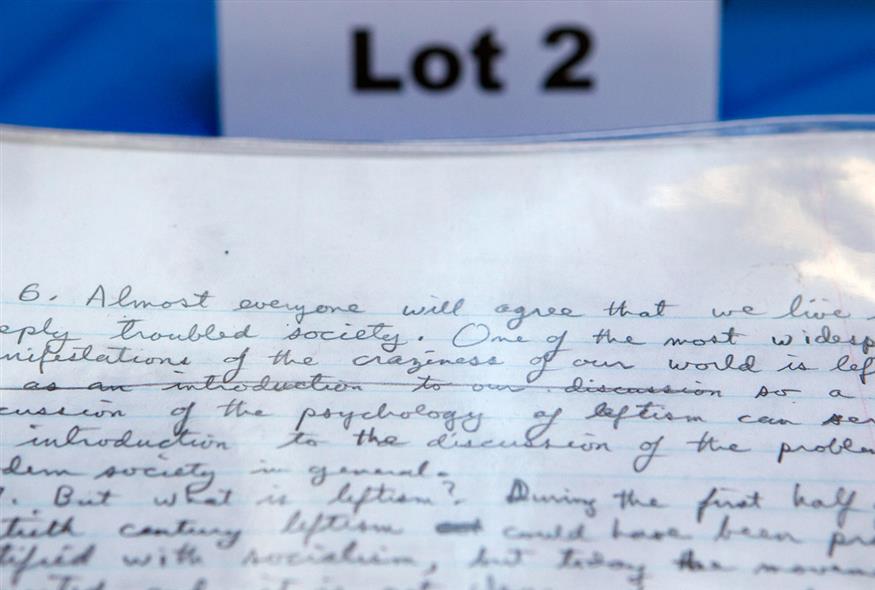 Lot 2
6. Almost everyone will agree that we live
eply troubled society. One of the most widesp
nifestations of the craziness of our world is lef
as an introduction to our discussion so a
cussion of the psychology of leftism can ser
introduction to the discussion of the proble
dern society in general.
7. But what is leftism? During the first half
tieth century leftism could have been pr
tified with socialism, but today the movem